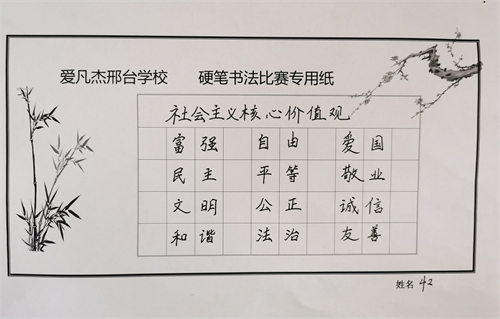 爱凡杰邢台学校 硬笔书法比赛专用纸
社会主义核心价值观
富强 自由 爱国
民主 平等 敬业
文明 公正 诚信
和谐 法治 友善
姓名 42